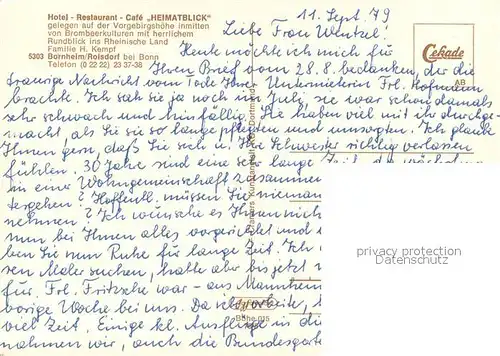 Hotel - Restaurant - Café „HEIMATBLICK"
gelegen auf der Vorgebirgshöhe inmitten
von Brombeerkulturen mit herrlichem
Rundblick ins Rheinische Land
Familie H. Kempf
5303 Bornheim/Roisdorf bei Bonn
Telefon (0 22 22) 23 37-38
11. Sept. 79
Liebe Frau Wentzel!
Cekade
AB
Heute möchte ich mich für
Ihren Brief vom 28.8. bedanken, der die
traurige Nachricht vom Tode Ihrer Untermieterin Frl. Hofmann
brachte. Ich sah sie ja noch im Juli, sie war schon damals
sehr schwach und hinfällig. Sie haben viel mit ihr durchge-
macht, als Sie sie so lange pflegten und umsorgten. Ich glaube
Ihnen gern, daß Sie sich u. Ihre Schwester richtig verlassen
fühlen. 30 Jahre sind eine sehr lange Zeit, da
in einer Wohngemeinschaft zusammen
Hoffentl. müssen Sie nieman
nehmen? Ich wünsche es Ihnen nicht
nun bei Ihnen alles vorgerichtet und
ben Sie nun Ruhe für lange Zeit. Ich
sen Maler suchen, hatte aber bis jetzt
für. Frl. Fritzsche war - aus Mannheim
vorige Woche bei uns. Da
viel Zeit. Einige kl. Ausflüge in die
nahmen wir, auch die Bundesgarte
privacy protection
Datenschutz